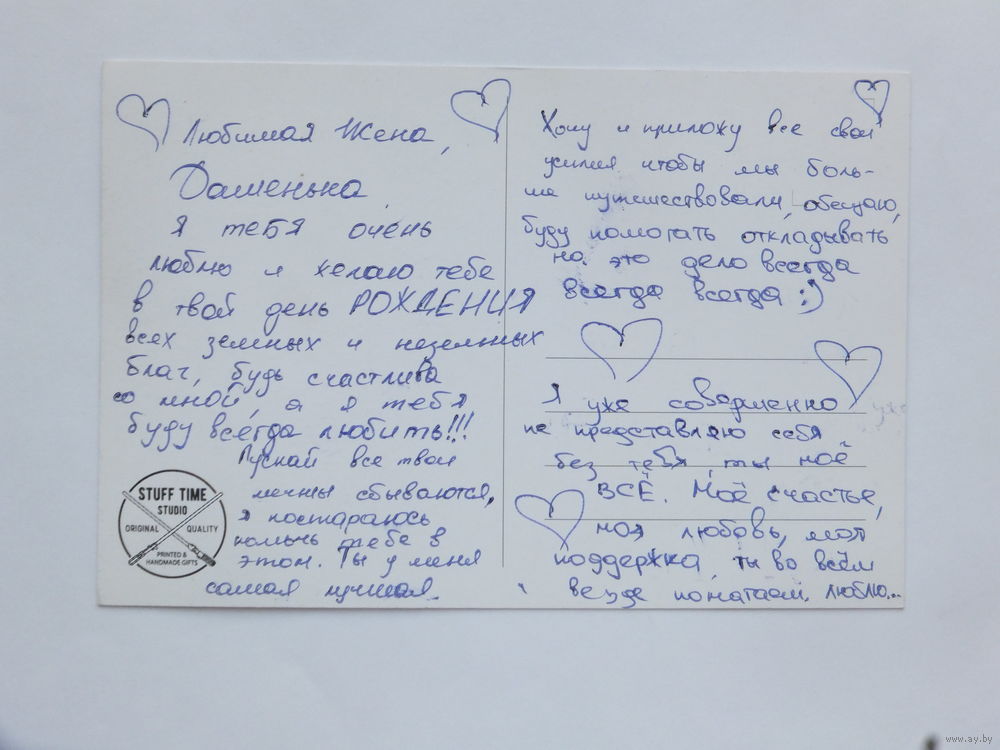 Любимая Жена,
Дашенька
я тебя очень
люблю и желаю тебе
в твой день РОЖДЕНИЯ
всех земных и неземных
благ, будь счастлива
со мной, а я тебя
буду всегда любить!!!
Пускай все твои
мечты сбываются,
я постараюсь
помочь тебе в
этом. Ты у меня
самая лучшая.
STUFF TIME
STUDIO
ORIGINAL QUALITY
PRINTED &
HANDMADE GIFTS
Хочу и приложу все свои
усилия чтобы мы боль-
ше путешествовали, обещаю,
буду помогать откладывать
на это дело всегда
всегда всегда :)
Я уже совершенно
не представляю себя
без тебя, ты моё
ВСЁ. Моё счастье,
моя любовь, моя
поддержка, ты во всём
везде помогаеш. люблю...
www.ay.by